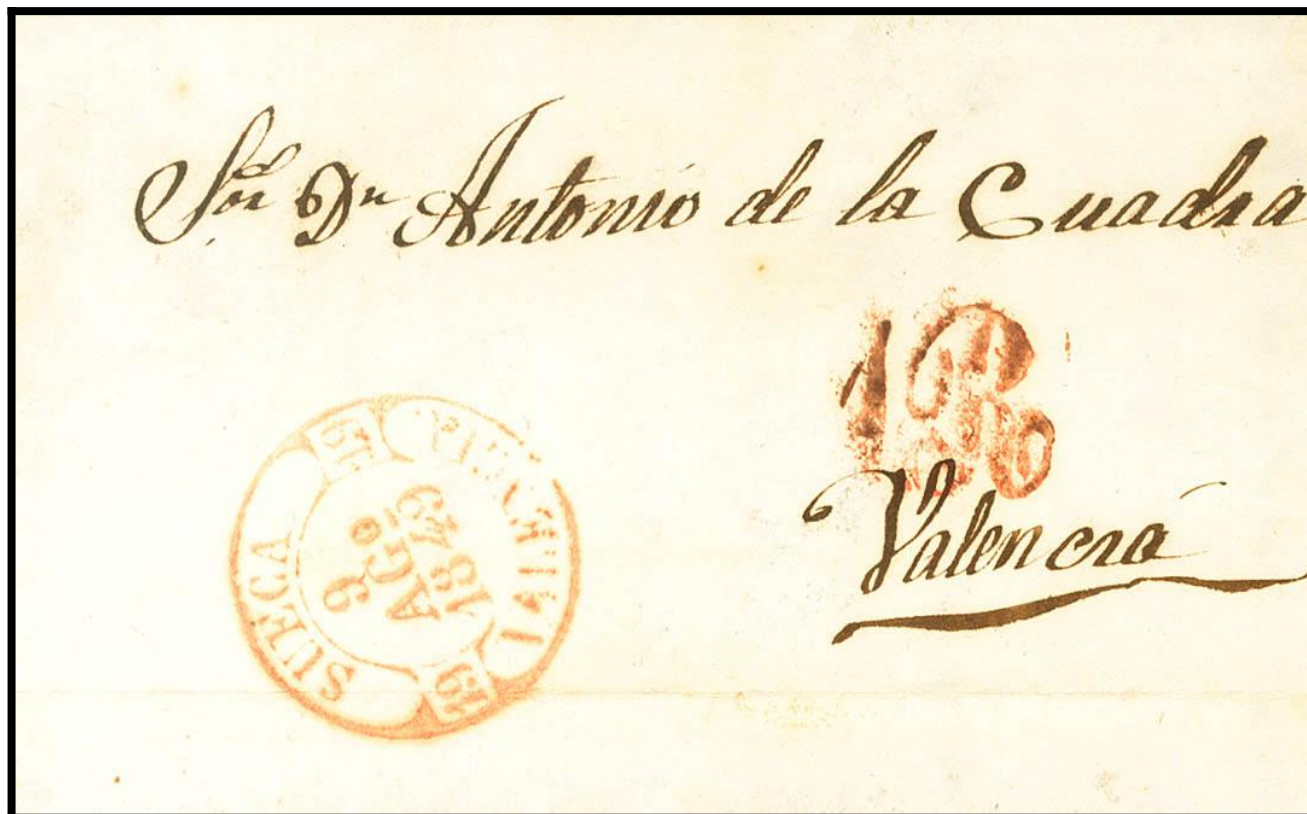 Sor Dn Antonio de la Cuadra
1R
Valencia
SUECA
9
AGO
1849
VALENCIA